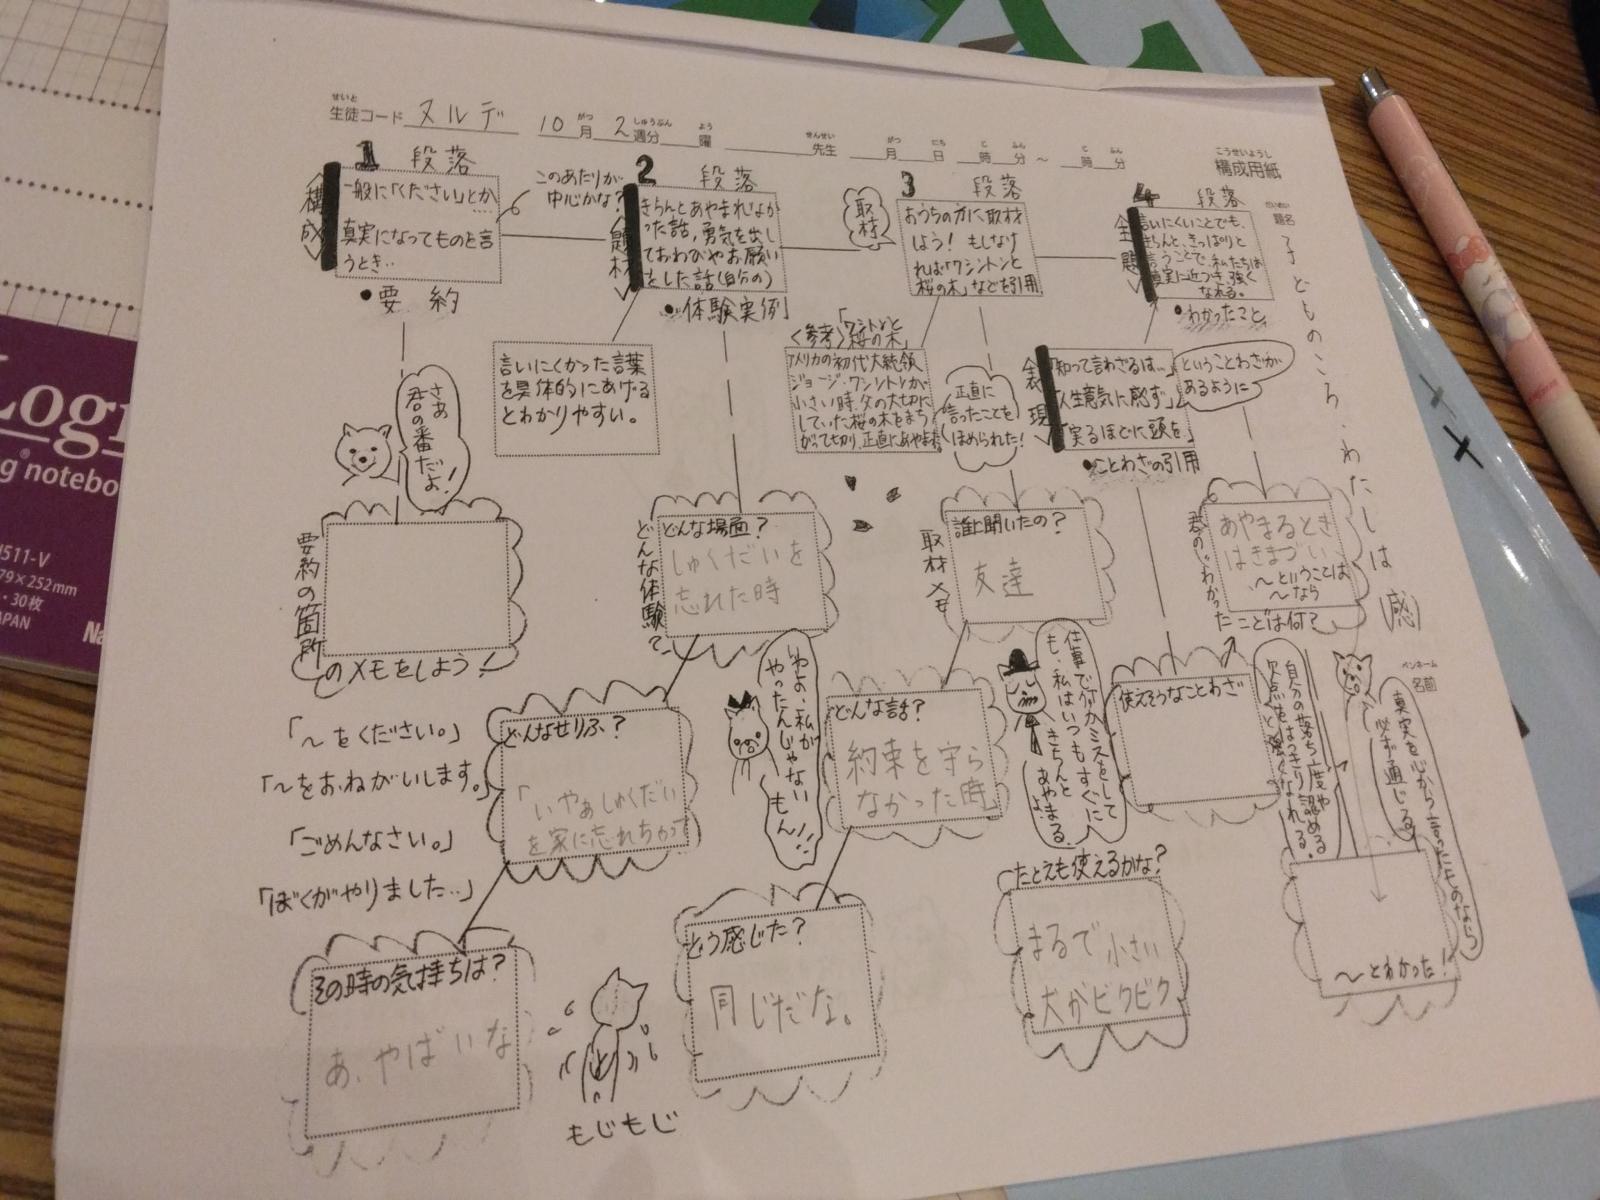 せいと
生徒コード ヌルデ 10月 2週分 曜 先生 月 日 時 分 ～ 時 分
がつ しゅうぶん よう せんせい がつ にち じ ふん じ ふん
こうせいようし
構成用紙
だいめい
題名
子どものころ・わたしは(感)
ペンネーム
名前
1 段落
構成
一般に「ください」とか
真実になってものを言
うとき‥
●要約
このあたりが
中心かな?
さあ
君の番だよ!
要約の箇所
のメモをしよう!
「～をください。」
「～をおねがいします。」
「ごめんなさい。」
「ぼくがやりました‥」
2 段落
題材
きちんとあやまれなか
った話,勇気を出し
ておわびやお願い
をした話(自分の)
●体験実例
言いにくかった言葉
を具体的にあげる
とわかりやすい。
どんな体験?
どんな場面?
しゅくだいを
忘れた時
どんなせりふ?
「いやぁしゅくだい
を家に忘れちゃって
その時の気持ちは?
あ、やばいな
いやよ、私が
やったんじゃない
もん!!
もじもじ
3 段落
取材
おうちの方に取材
しよう! もしなけ
れば「ワシントンと
桜の木」などを引用
〈参考〉「ワシントンと
桜の木」
アメリカの初代大統領
ジョージ・ワシントンが
小さい時、父の大切に
していた桜の木をまち
がって切り、正直にあやまる
正直に
言ったことも
ほめられた!
取材メモ
誰に聞いたの?
友達
どんな話?
約束を守ら
なかった時
どう感じた?
同じだな。
仕事で何かミスをして
も、私はいつもすぐに
きちんと
あやまる
よ。
4 段落
主題
言いにくいことでも、
きちんと、きっぱりと
言うことで、私たちは
真実に近づき、強く
なれる。
●わかったこと
表現
「知って言わざるは…」
「人生意気に感ず」
「実るほどに頭を」
ということわざが
あるように
●ことわざの引用
君の“わかった
ことは何?
あやまるとき
はきまづい
～ということは
～なら
使えそうなことわざ
たとえも使えるかな?
まるで小さい
犬がビクビク
自分の落ち度や
欠点をはっきり認める
と強くなれる。
真実を心から言う
必ず通じる。
～とわかった!
Logi
notebo
511-V
79×252mm
・30枚
JAPAN